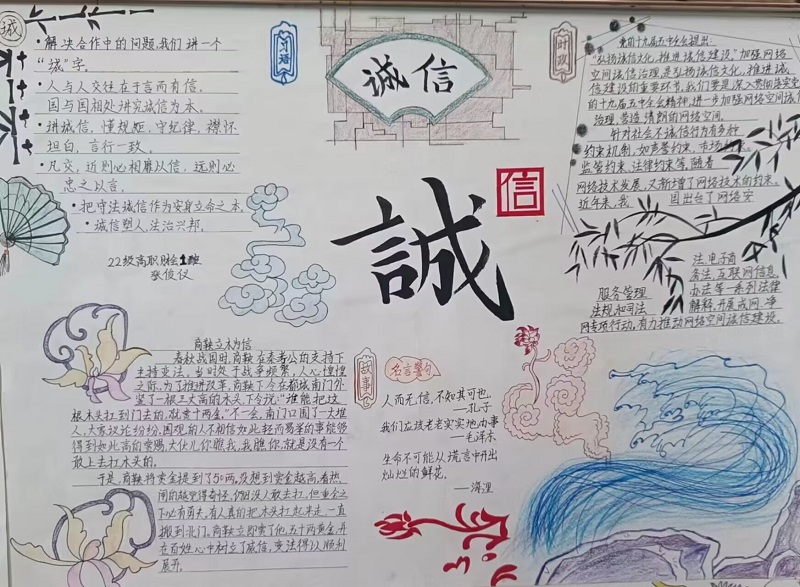 诚
• 解决合作中的问题,我们讲一个
“诚”字。
• 人与人交往在于言而有信,
国与国相处讲究诚信为本。
• 讲诚信,懂规矩,守纪律,襟怀
坦白,言行一致。
• 凡交,近则必相靡以信,远则必
忠之以言。
• 把守法诚信作为安身立命之本。
• 诚信塑人,法治兴邦。
22级高职财会1班
习语
诚信
时政
信
誠
党的十九届五中全会提出:
“弘扬诚信文化,推进诚信建设。”加强网络
空间诚信治理,是弘扬诚信文化、推进诚
信建设的重要环节,我们要深入贯彻落实党
的十九届五中全会精神,进一步加强网络空间诚信
治理,营造清朗的网络空间。
针对社会不诚信行为有多种
约束机制,如声誉约束、市场约束、
监管约束、法律约束等,随着
网络技术发展,又新增了网络技术的约束。
近年来,我 国出台了网络安
法,电子商
务法,互联网信息
服务管理 办法等一系列法律
法规和司法 解释,开展或网·净
网专项行动,有力推动网络空间诚信建设。
商鞅立木为信
春秋战国时,商鞅在秦孝公的支持下
主持变法,当时处于战争频繁、人心惶惶
之际,为了推进改革,商鞅下令在都城南门外
竖了一根三丈高的木头,下令说:“谁能把这
根木头扛到门去的,就赏十两金。”不一会,南门口围了一大堆
人,大家议论纷纷。围观的人不相信如此轻而易举的事能够
得到如此高的赏赐,大伙儿你瞧我,我瞧你,就是没有一个
敢上去扛木头的。
于是,商鞅将赏金提到了50两,没想到赏金越高,看热
闹的越觉得奇怪,仍旧没人敢去扛。但重金之
下必有勇夫,有人真的把木头扛起来走,一直
搬到北门,商鞅立即赏了他五十两黄金,并
在百姓心中树立了威信,变法得以顺利
展开。
故事
名言警句
人而无信,不知其可也。
——孔子
我们应该老老实实地办事
——毛泽东
生命不可能从谎言中开出
灿烂的鲜花。
——海涅